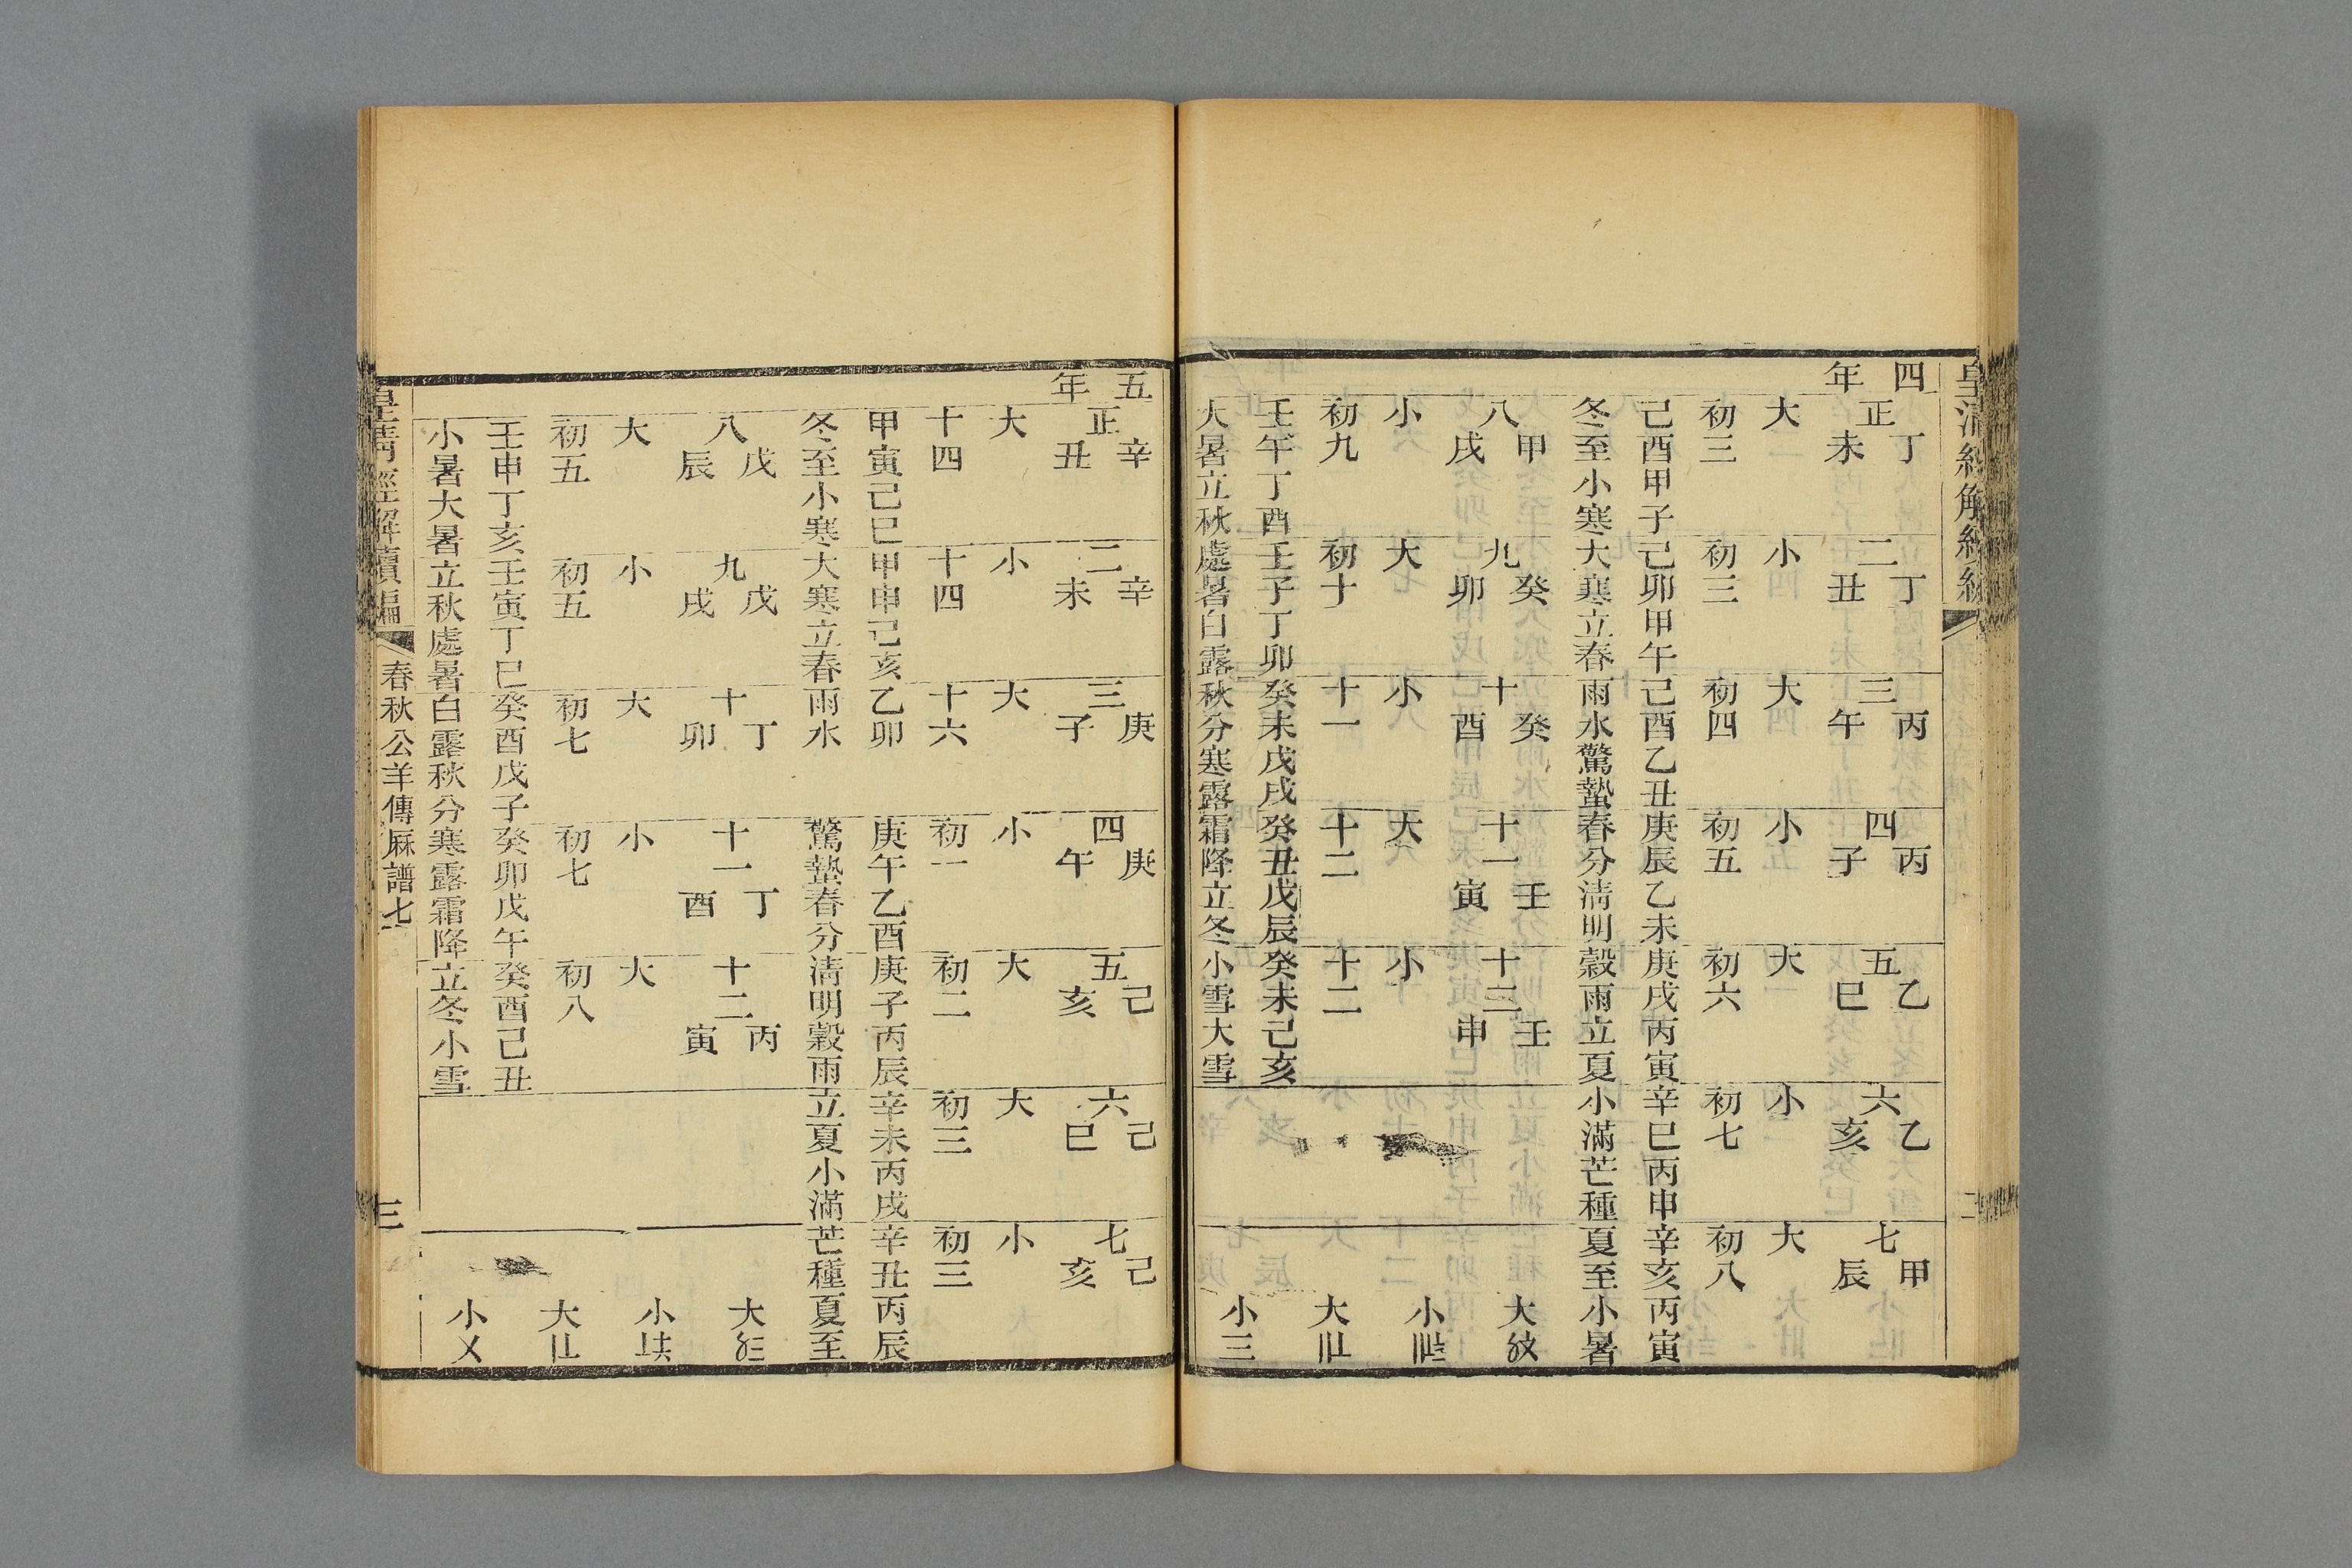 皇清經解
四年
正丁未 二丁丑 三丙午 四丙子 五乙巳 六乙亥 七甲辰
大 小 大 小 大 小 大
初三 初三 初四 初五 初六 初七 初八
己酉甲子己卯甲午己酉乙丑庚辰乙未庚戌丙寅辛巳丙申辛亥丙寅
冬至小寒大寒立春雨水驚蟄春分清明穀雨立夏小滿芒種夏至小暑
八甲戌 九癸卯 十癸酉 十一壬寅 十二壬申
小 大 小 大 小
初九 初十 十一 十二 十二
壬午丁酉壬子丁卯癸未戊戌癸丑戊辰癸未己亥
大暑立秋處暑白露秋分寒露霜降立冬小雪大雪
大
小
大
小三
五年
正辛丑 二辛未 三庚子 四庚午 五己亥 六己巳 七己亥
大 小 大 小 大 大 小
十四 十四 十六 初一 初二 初三 初三
甲寅己巳甲申己亥乙卯 庚午乙酉庚子丙辰辛未丙戌辛丑丙辰
冬至小寒大寒立春雨水 驚蟄春分清明穀雨立夏小滿芒種夏至
八戊辰 九戊戌 十丁卯 十一丁酉 十二丙寅
大 小 大 小 大
初五 初五 初七 初七 初八
壬申丁亥壬寅丁巳癸酉戊子癸卯戊午癸酉己丑
小暑大暑立秋處暑白露秋分寒露霜降立冬小雪
大
小
大
小〤
皇清經解續編 春秋公羊傳厤譜七 三